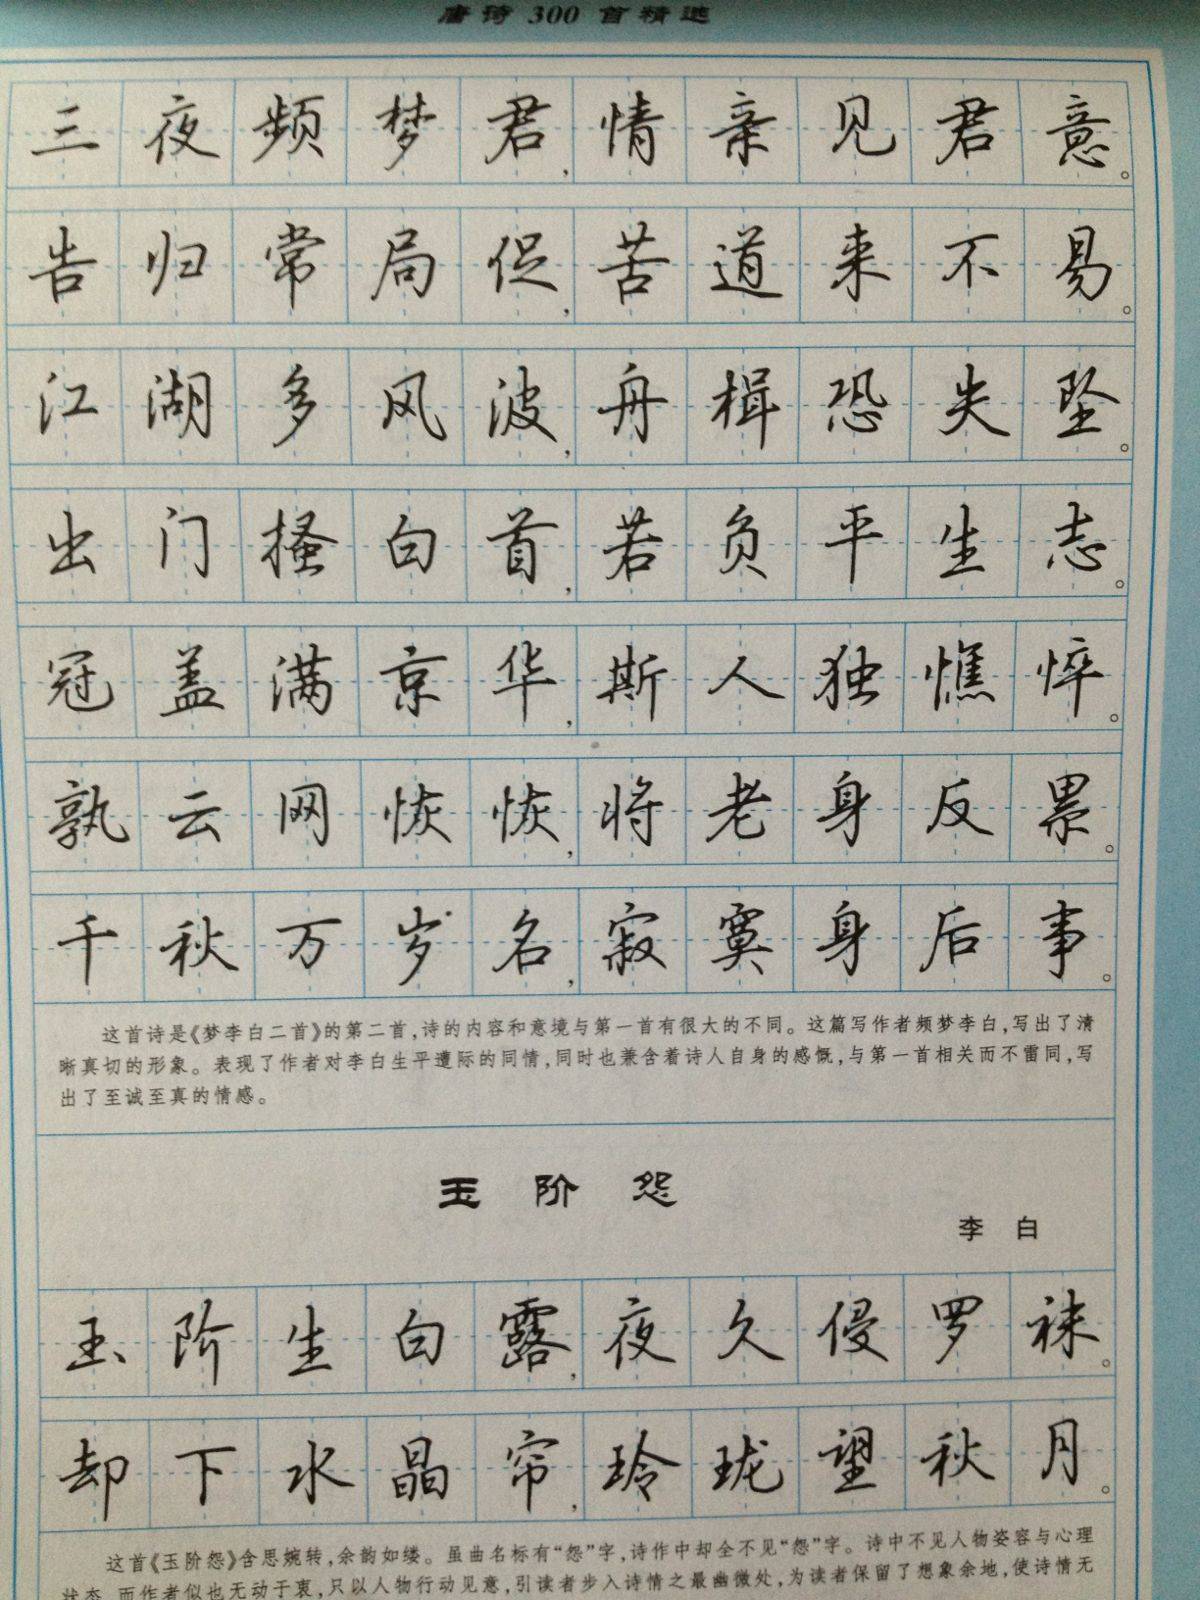 唐诗300首精选
三夜频梦君,情亲见君意。
告归常局促,苦道来不易。
江湖多风波,舟楫恐失坠。
出门搔白首,若负平生志。
冠盖满京华,斯人独憔悴。
孰云网恢恢,将老身反累。
千秋万岁名,寂寞身后事。
这首诗是《梦李白二首》的第二首,诗的内容和意境与第一首有很大的不同。这篇写作者频梦李白,写出了清
晰真切的形象。表现了作者对李白生平遭际的同情,同时也兼含着诗人自身的感慨,与第一首相关而不雷同,写
出了至诚至真的情感。
玉阶怨
李白
玉阶生白露,夜久侵罗袜。
却下水晶帘,玲珑望秋月。
这首《玉阶怨》含思婉转,余韵如缕。虽曲名标有“怨”字,诗作中却全不见“怨”字。诗中不见人物姿容与心理
状态,而作者似也无动于衷,只以人物行动见意,引读者步入诗情之最幽微处,为读者保留了想象余地,使诗情无